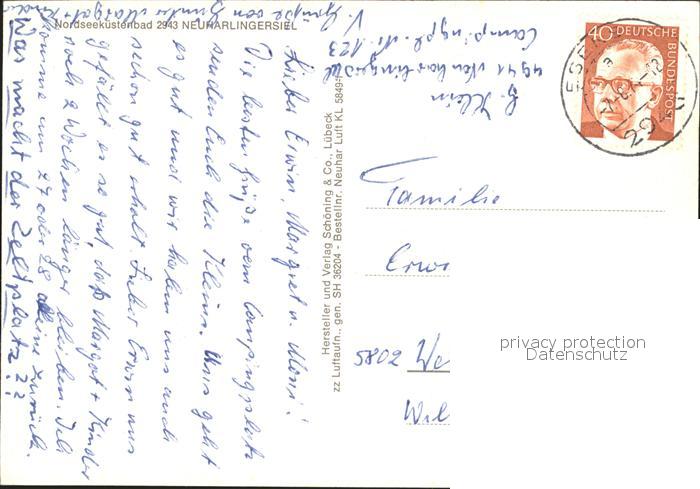 Nordseeküstenbad 2943 NEUHARLINGERSIEL
Lieber Erwin, Margret u. Moni!
Die besten Grüße vom Campingplatz
senden Euch die Kleins. Uns geht
es gut und wir haben uns auch
schon gut erholt. Lieber Erwin uns
gefällt es so gut, daß Margot + Kinder
noch 2 Wochen länger bleiben. Ich
komme am 27 oder 28 alleine zurück.
Was macht der Zeltplatz??
V. Grüße von Gunter Margot + Kinder
Hersteller und Verlag Schöning & Co., Lübeck
zz Luftaufn., gen. SH 36204 - Bestellnr. Neuhar Luft KL 5849
G. Klein
4941 Neuharlingersiel
Campingpl. Nr. 123
40 DEUTSCHE
BUNDESPOST
ESE
a
294
Familie
Erwi
5802 We
Wil
privacy protection
Datenschutz